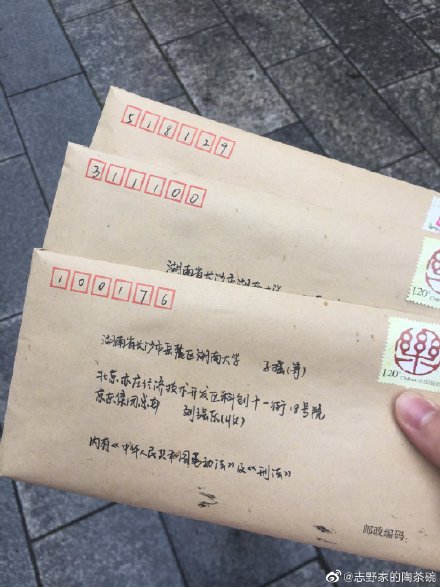 518129
311100
湖南省长沙市
100176
湖南省长沙市岳麓区湖南大学
北京亦庄经济技术开发区科创十一街18号院
京东集团总部 刘强东(收)
内有《中华人民共和国劳动法》及《刑法》
1.20元
1.20元
邮政编码
@志野家的陶茶碗